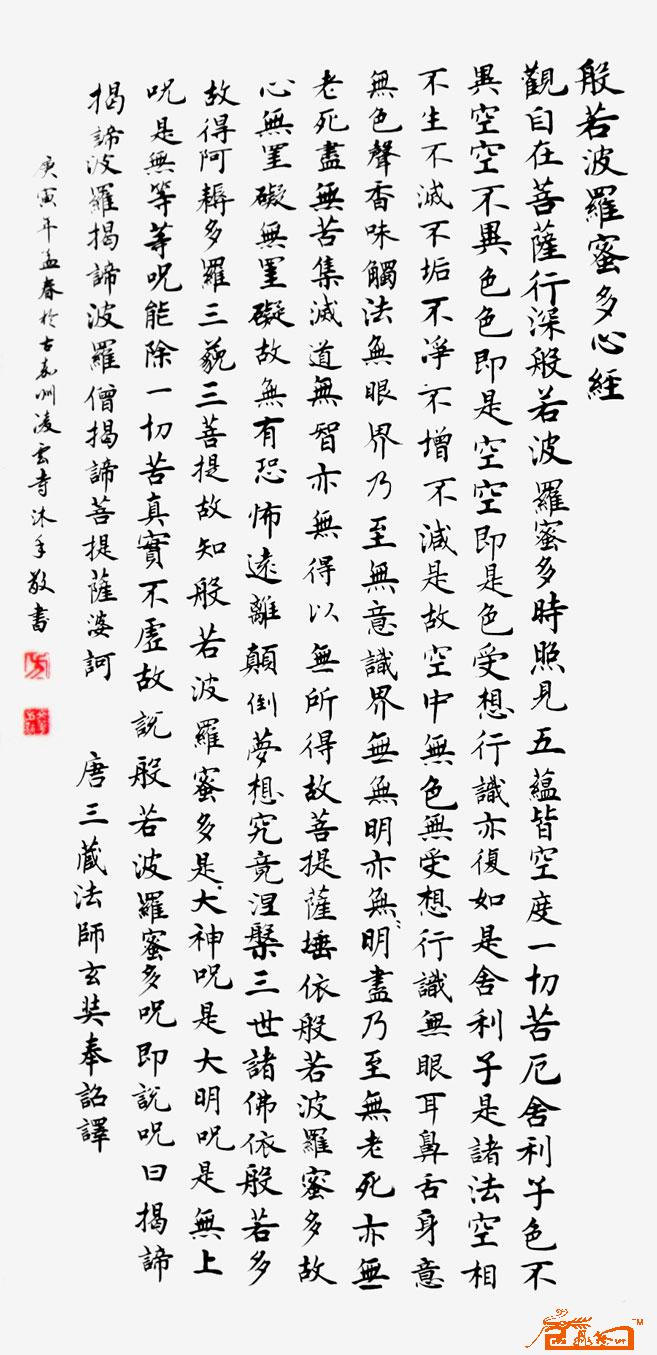 般若波羅蜜多心經
觀自在菩薩行深般若波羅蜜多時照見五蘊皆空度一切苦厄舍利子色不
異空空不異色色即是空空即是色受想行識亦復如是舍利子是諸法空相
不生不滅不垢不淨不增不減是故空中無色無受想行識無眼耳鼻舌身意
無色聲香味觸法無眼界乃至無意識界無無明亦無〻明盡乃至無老死亦無
老死盡無苦集滅道無智亦無得以無所得故菩提薩埵依般若波羅蜜多故
心無罣礙無罣礙故無有恐怖遠離顛倒夢想究竟涅槃三世諸佛依般若多
故得阿耨多羅三藐三菩提故知般若波羅蜜多是大神呪是大明呪是無上
呪是無等等呪能除一切苦真實不虛故説般若波羅蜜多呪即説呪曰揭諦
揭諦波羅揭諦波羅僧揭諦菩提薩婆訶 唐三藏法師玄奘奉詔譯
庚寅年孟春於古嘉州凌雲寺沐手敬書